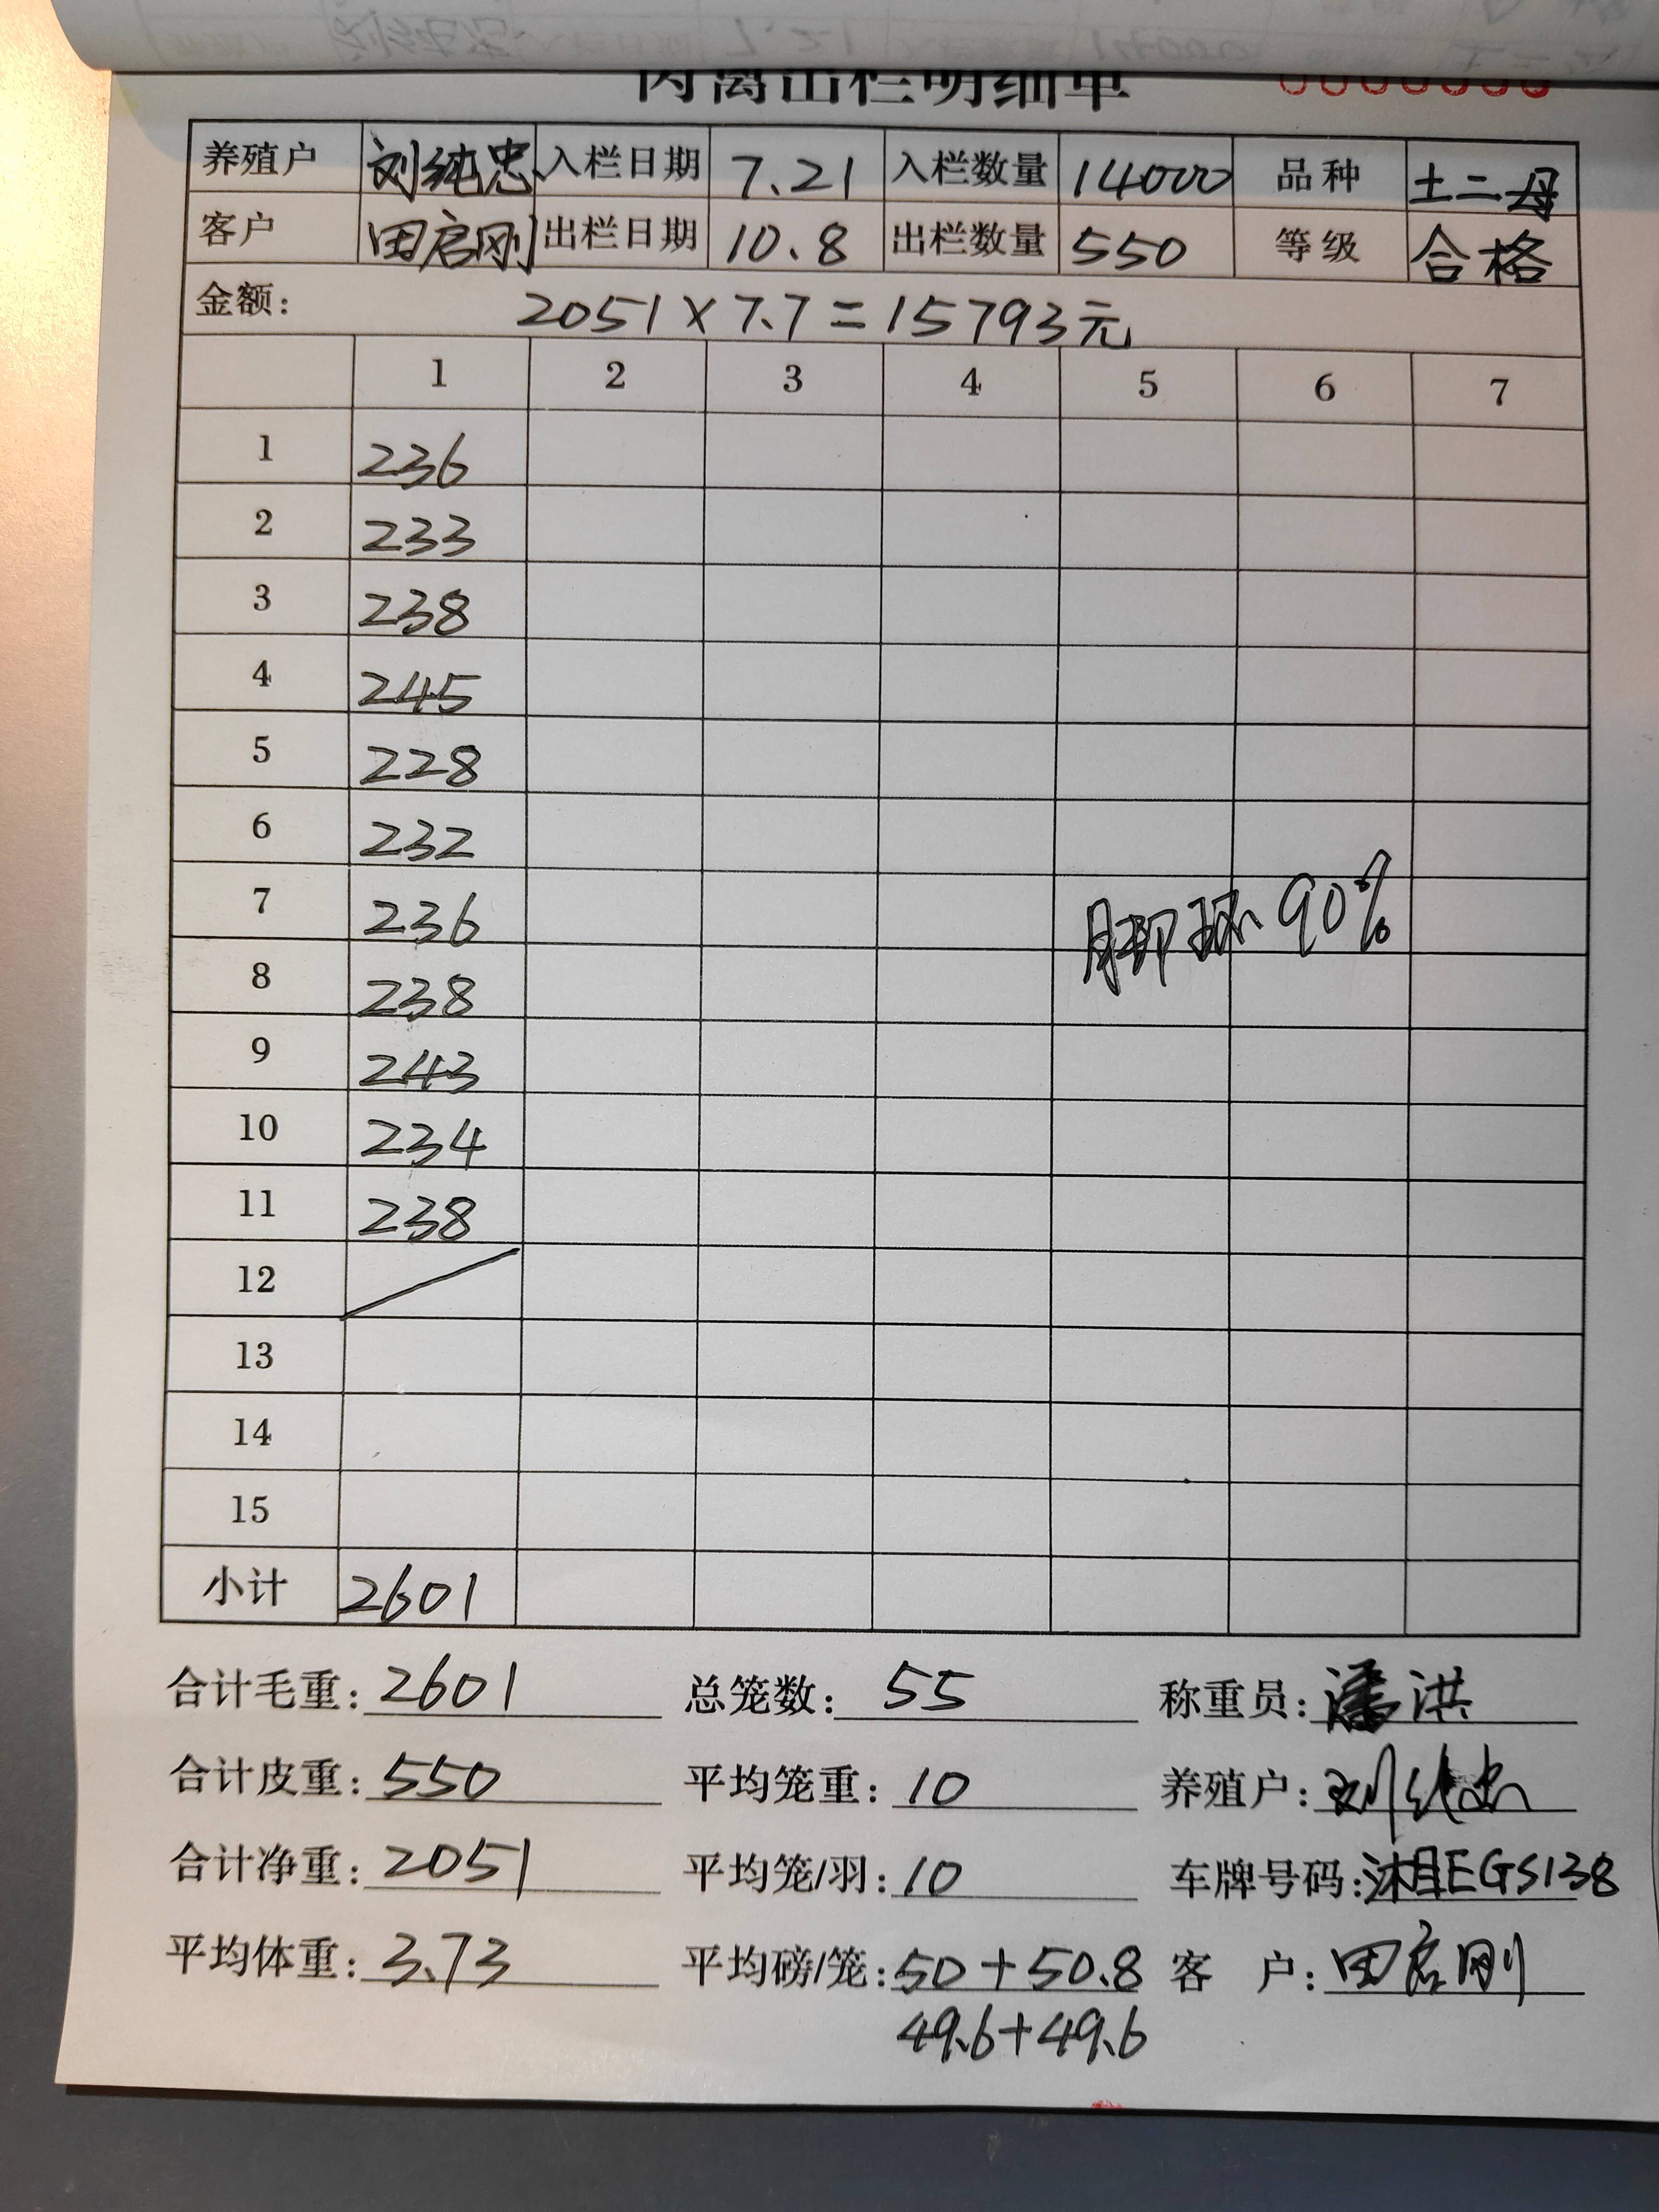 肉禽出栏明细单
养殖户 刘纯忠 入栏日期 7.21 入栏数量 14000 品种 土二母
客户 田启刚 出栏日期 10.8 出栏数量 550 等级 合格
金额: 2051×7.7=15793元
1 2 3 4 5 6 7
1 236
2 233
3 238
4 245
5 228
6 232
7 236 脚环90%
8 238
9 243
10 234
11 238
12
13
14
15
小计 2601
合计毛重: 2601 总笼数: 55 称重员: 潘洪
合计皮重: 550 平均笼重: 10 养殖户: 刘纯忠
合计净重: 2051 平均笼/羽: 10 车牌号码: 湘EGS138
平均体重: 3.73 平均磅/笼: 50+50.8 客 户: 田启刚
49.6+49.6